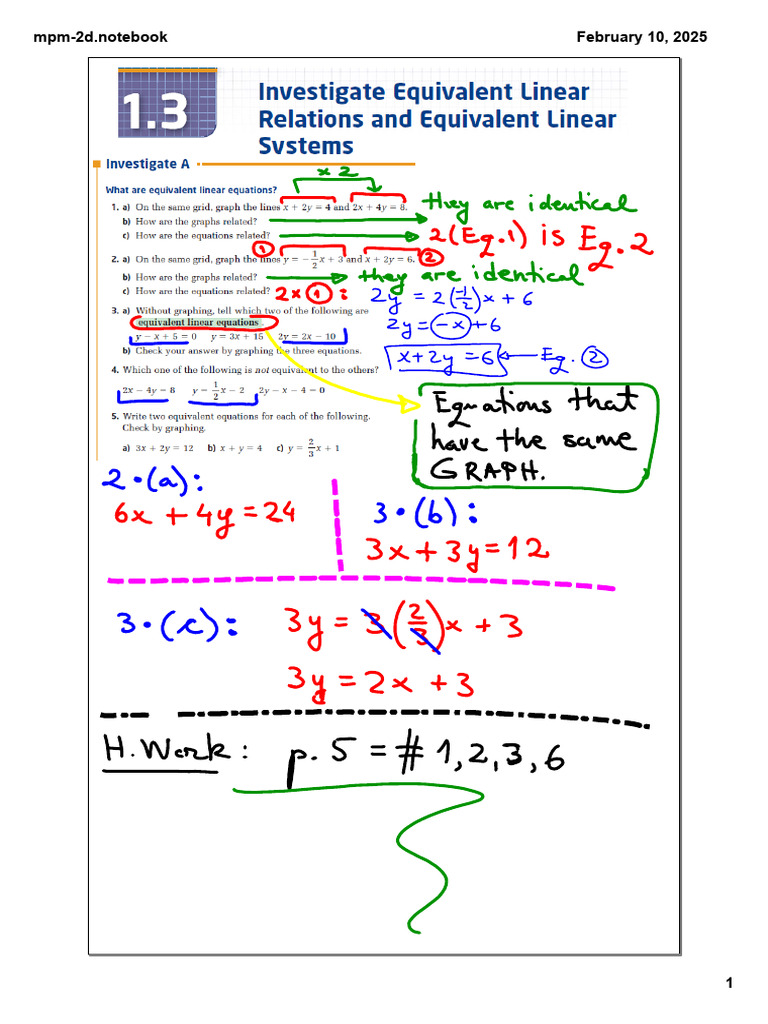 mpm-2d.notebook
February 10, 2025
1.3
Investigate Equivalent Linear
Relations and Equivalent Linear
Systems
Investigate A
x 2
What are equivalent linear equations?
1. a) On the same grid, graph the lines x + 2y = 4 and 2x + 4y = 8.
they are identical
b) How are the graphs related?
c) How are the equations related?
2(Eq.1) is Eq.2
① ②
2. a) On the same grid, graph the lines y = -1/2x + 3 and x + 2y = 6.
b) How are the graphs related?
they are identical
c) How are the equations related?
2x ① :
2y = 2(-1/2)x + 6
2y = -x + 6
x + 2y = 6 ← Eq. ②
3. a) Without graphing, tell which two of the following are
equivalent linear equations.
y − x + 5 = 0 y = 3x + 15 2y = 2x − 10
b) Check your answer by graphing the three equations.
4. Which one of the following is not equivalent to the others?
2x − 4y = 8 y = 1/2x − 2 2y − x − 4 = 0
Equations that
have the same
GRAPH.
5. Write two equivalent equations for each of the following.
Check by graphing.
a) 3x + 2y = 12 b) x + y = 4 c) y = 2/3x + 1
2•(a):
6x + 4y = 24
3•(b):
3x + 3y = 12
3•(c):
3y = 3(2/3)x + 3
3y = 2x + 3
H. Work: p. 5 = # 1, 2, 3, 6
1